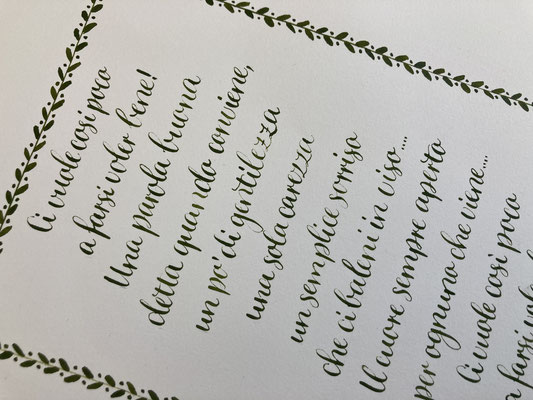 Ci vuole così poco
a farsi voler bene!
Una parola buona
detta quando conviene,
un po' di gentilezza
una sola carezza
un semplice sorriso
che ci baleni in viso....
Il cuore sempre aperto
per ognuno che viene....
Ci vuole così poco
a farsi